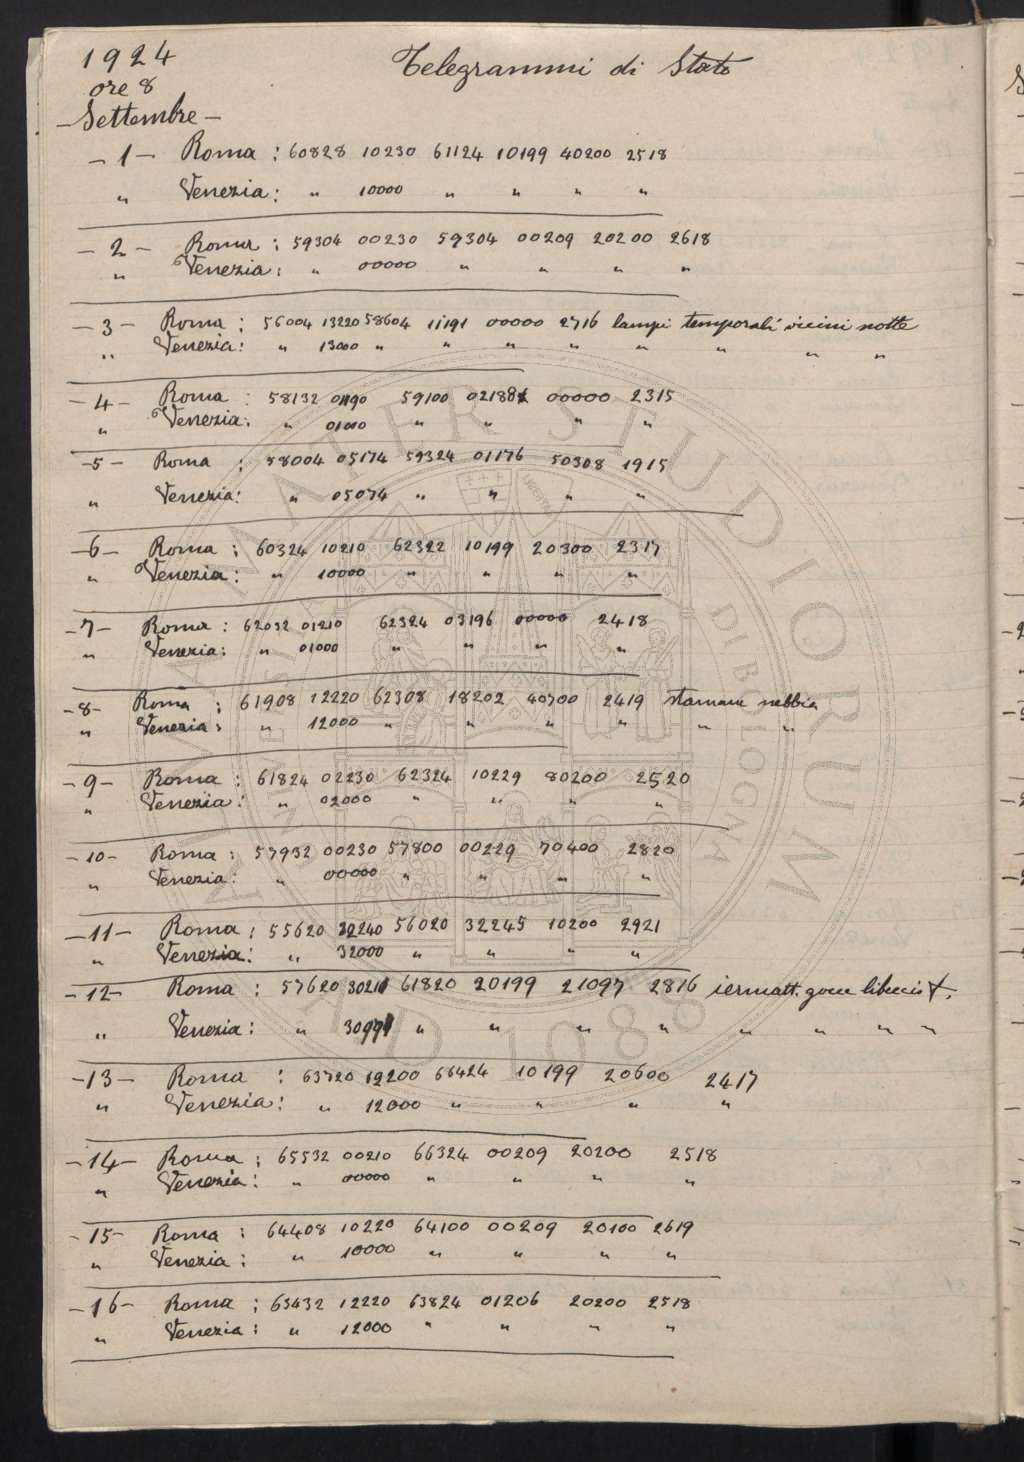 1924
Telegrammi di Stato
ore 8
- Settembre -
- 1 - Roma : 60828 10230 61124 10199 40200 2518
" Venezia : " 10000 " " " "
- 2 - Roma : 59304 00230 59304 00209 20200 2618
" Venezia : " 00000 " " " "
- 3 - Roma : 56004 13220 58604 11191 00000 2716 lampi temporali vicini notte
" Venezia : " 13000 " " " " " " " "
- 4 - Roma : 58132 01190 59100 02188 00000 2315
" Venezia : " 01000 " " " "
- 5 - Roma : 58004 05174 59324 01176 50308 1915
" Venezia : " 05074 " " " "
- 6 - Roma : 60324 10210 62322 10199 20300 2317
" Venezia : " 10000 " " " "
- 7 - Roma : 62032 01210 62324 03196 00000 2418
" Venezia : " 01000 " " " "
- 8 - Roma : 61908 12220 62308 18202 40700 2419 stamane nebbia
" Venezia : " 12000 " " " " " "
- 9 - Roma : 61824 02230 62324 10229 80200 2520
" Venezia : " 02000 " " " "
- 10 - Roma : 57932 00230 57800 00229 70400 2820
" Venezia : " 00000 " " " "
- 11 - Roma : 55620 32240 56020 32245 10200 2921
" Venezia : " 32000 " " " "
- 12 - Roma : 57620 30211 61820 20199 21097 2816 iermatt. gocce
" Venezia : " " " " " " " " "
- 13 - Roma : 63720 12200 66424 10199 20600 2417
" Venezia : " 12000 " " " "
- 14 - Roma : 65532 00210 66324 00209 20200 2518
" Venezia : " 00000 " " " "
- 15 - Roma : 64408 10220 64100 00209 20100 2619
" Venezia : " 10000 " " " "
- 16 - Roma : 63432 12220 63824 01206 20200 2518
" Venezia : " 12000 " " " "
ALMA MATER STUDIORUM
A.D. 1088